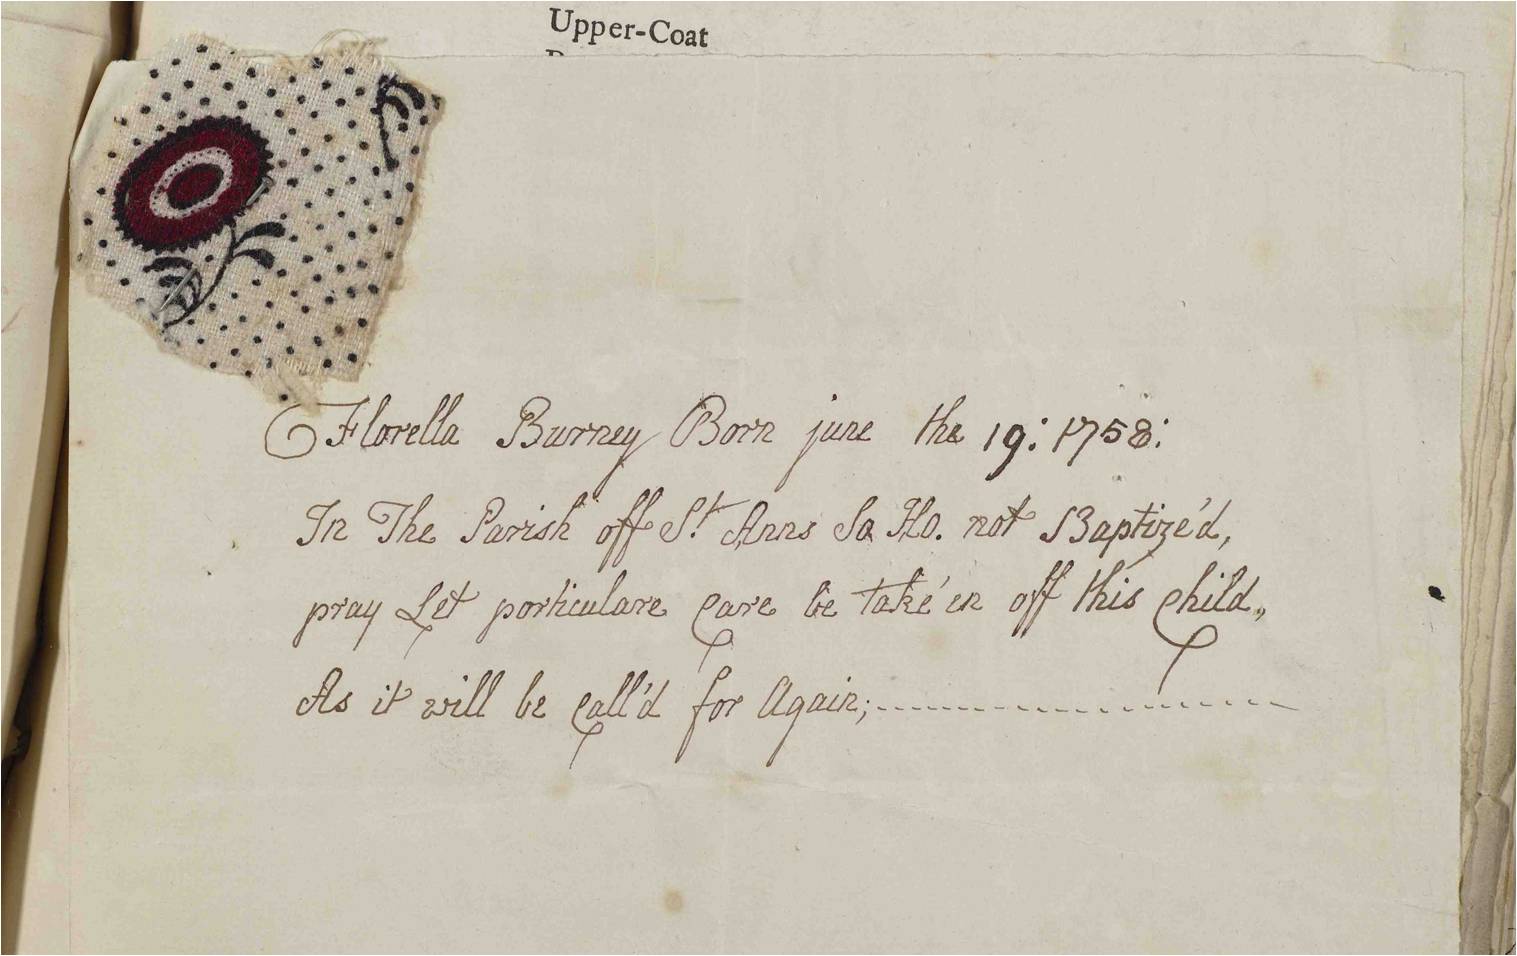 Upper-Coat
Florella Burney Born june the 19: 1758:
In The Parish off St. Anns So Ho. not Baptize'd,
pray Let porticulare Care be take'en off this Child,,
As it will be Call'd for Again;